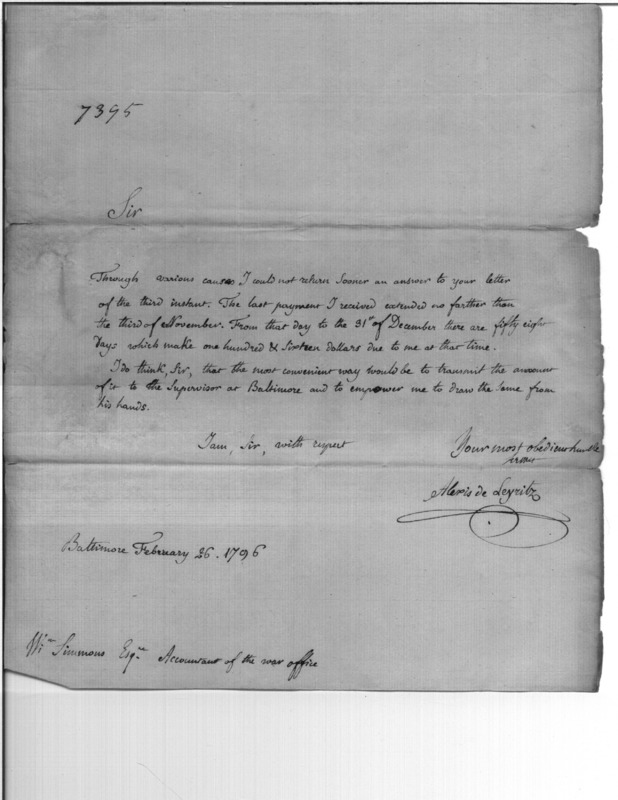 7395
Sir
Through various causes I could not return sooner an answer to your letter
of the third instant. The last payment I received extended no farther than
the third of November. From that day to the 31st of December there are fifty eight
days which make one hundred & sixteen dollars due to me at that time.
I do think, Sir, that the most convenient way would be to transmit the amount
of it to the Supervisor at Baltimore and to empower me to draw the same from
his hands.
I am, Sir, with respect
Your most obedient humble
servant
Alexis de Leyritz
Baltimore February 26. 1796
Wm Simmons Esqr. Accountant of the war office